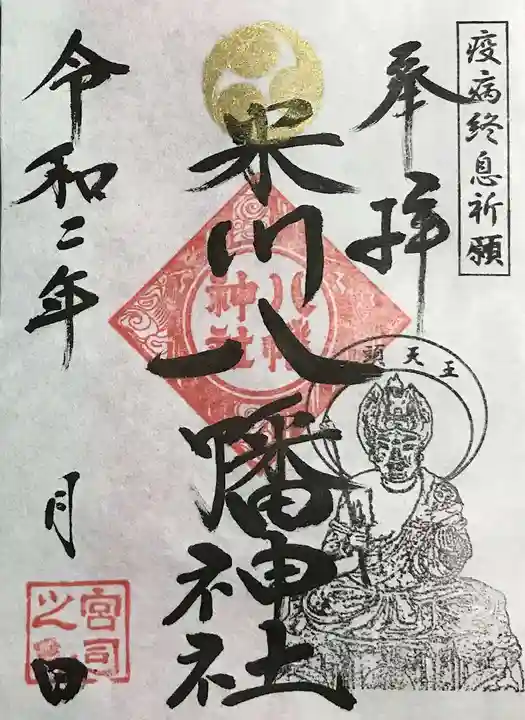 疫病終息祈願
奉拝
米川八幡神社
八幡
神社
頭天王
令和二年 月 日
宮司
之印